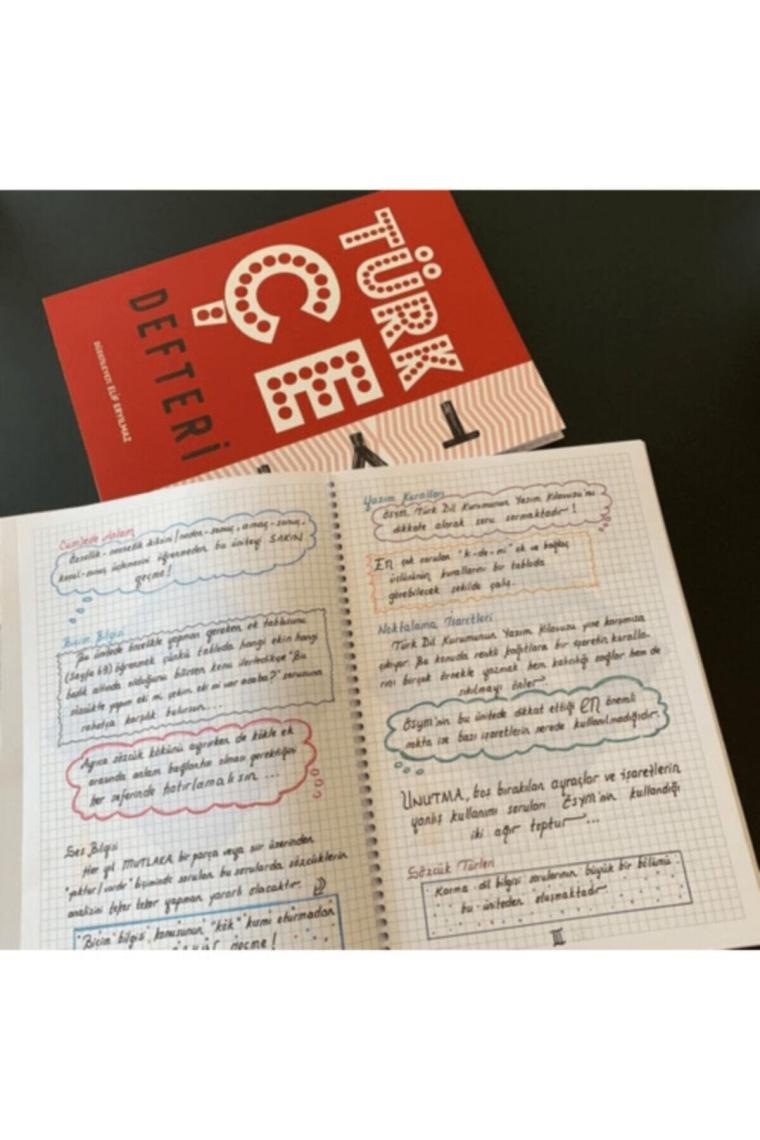 TÜRK
ÇE
DEFTERİ
DÜZENLEYEN: ELİF ERYILMAZ
TY
Cümlede Anlam
Öznellik-nesnellik ikilisi/neden-sonuç, amaç-sonuç,
koşul-sonuç üçlemesini öğrenmeden bu üniteyi SAKIN
geçme!
Biçim Bilgisi
Bu ünitede öncelikle yapman gereken ek tablosunu
(sayfa 69) öğrenmek çünkü tabloda hangi ekin hangi
başlık altında olduğunu bilirsen konu ilerledikçe "Bu
sözcükte yapım eki mi, çekim eki mi var acaba?" sorusuna
rahatça karşılık bulursun...
Ayrıca sözcük kökünü ayırırken de kökle ek
arasında anlam bağlantısı olması gerektiğini
her seferinde hatırlamalısın...
Ses Bilgisi
Her yıl MUTLAKA bir parça veya şiir üzerinden
"yoktur/vardır" biçiminde sorulan bu sorularda sözcüklerin
analizini teker teker yapman yararlı olacaktır.
"Biçim bilgisi" konusunun "kök" kısmı oturmadan
geçme!
Yazım Kuralları
Ösym, Türk Dil Kurumunun Yazım Kılavuzu'nu
dikkate alarak soru sormaktadır!
En çok sorulan "ki-de-mi" ek ve bağlaç
üçlüsünün kurallarını bir tabloda
görebilecek şekilde çalış.
Noktalama İşaretleri
Türk Dil Kurumunun Yazım Kılavuzu yine karşımıza
çıkıyor. Bu konuda renkli kağıtlara bir işaretin kuralla-
rını birçok örnekle yazmak hem kalıcılığı sağlar hem de
sıkılmayı önler.
Ösym'nin bu ünitede dikkat ettiği EN önemli
nokta ise bazı işaretlerin nerede kullanılmadığıdır.
UNUTMA, boş bırakılan ayraçlar ve işaretlerin
yanlış kullanımı soruları Ösym'nin kullandığı
iki ağır toptur...
Sözcük Türleri
Karma dil bilgisi sorularının büyük bir bölümü
bu üniteden oluşmaktadır.
III